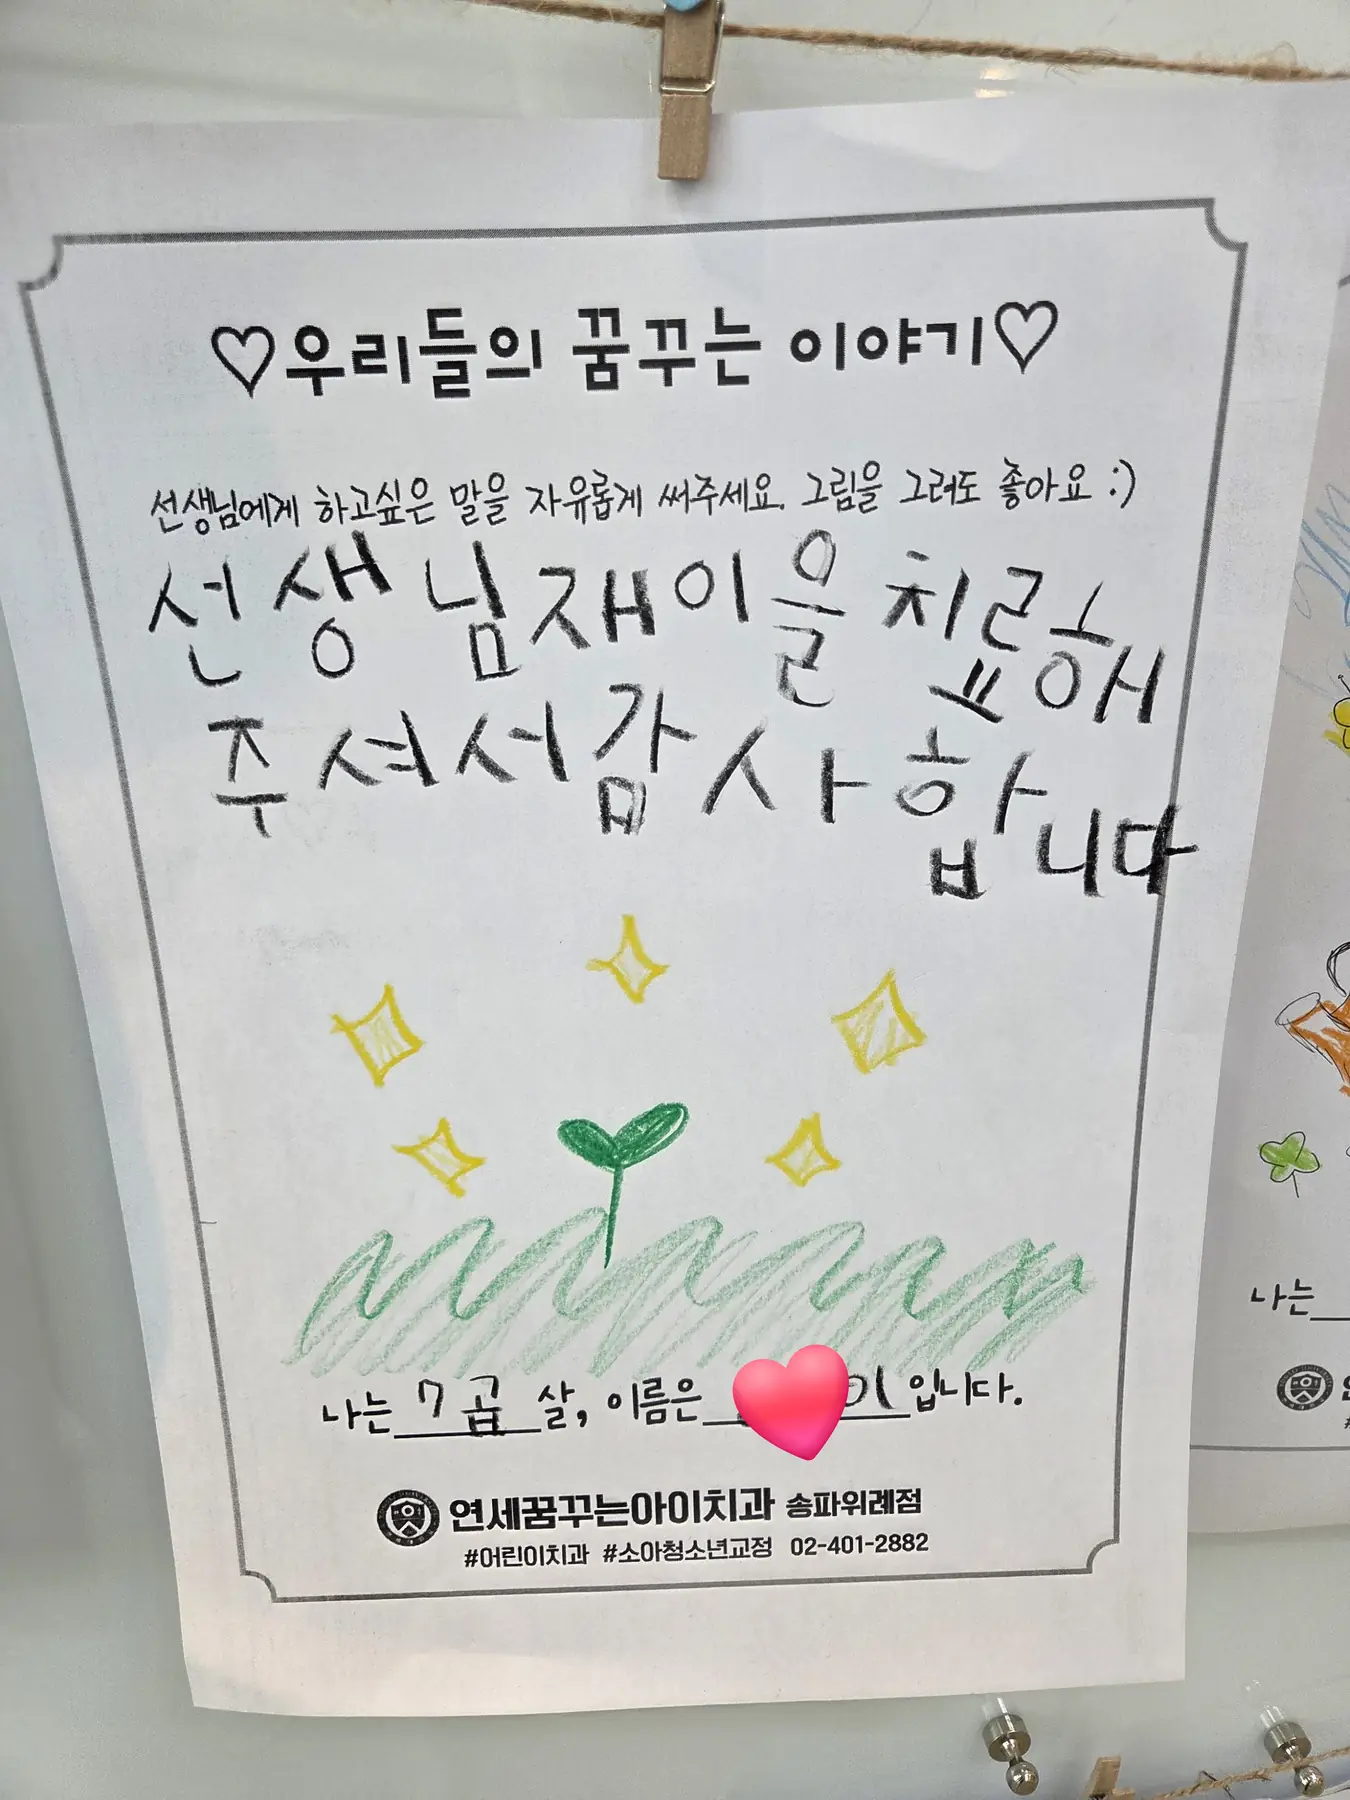 ♡우리들의 꿈꾸는 이야기♡
선생님에게 하고싶은 말을 자유롭게 써주세요. 그림을 그려도 좋아요 :)
선생님재이을치료해
주셔서감사합니다
나는 7곱 살, 이름은 이 입니다.
연세꿈꾸는아이치과 송파위례점
#어린이치과 #소아청소년교정 02-401-2882
나는